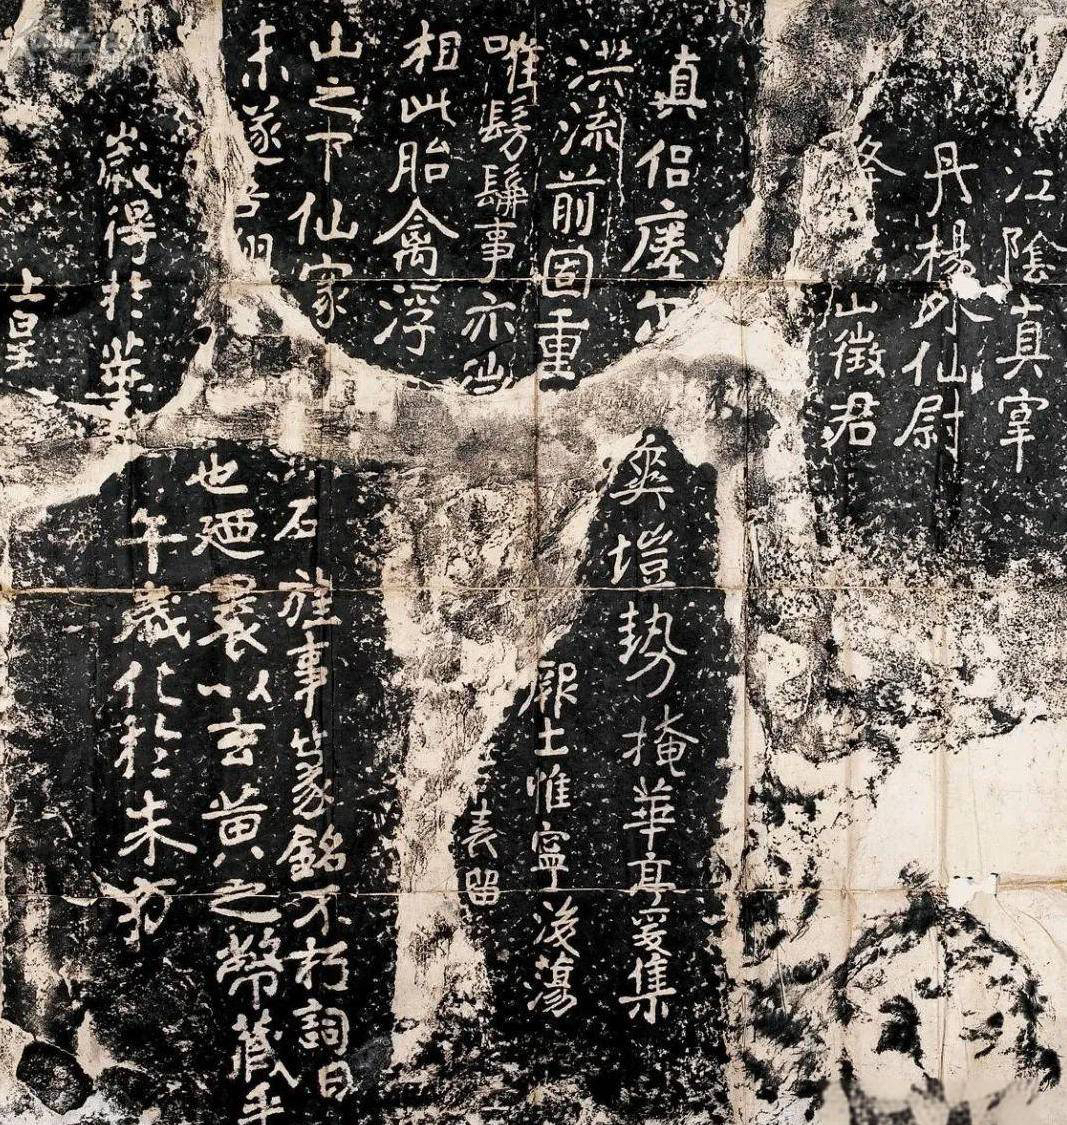 上皇
歲得於華
午歲化於朱方
未遂吾翔
也迺裹以玄黃之幣藏乎
山之下仙家
石旌事篆銘不朽詞曰
相此胎禽浮
唯髣髴事亦
表留
洪流前固重
厥土惟寧後蕩
真侶瘞爾
爽塏勢掩華亭爰集
夅山徵君
丹楊外仙尉
江陰真宰